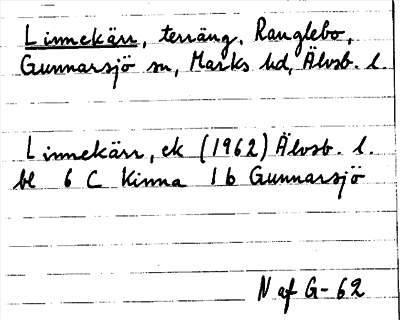 Linnekärr, terräng, Ranglebo,
Gunnarsjö sn, Marks hd, Älvsb. l.
Linnekärr, ek (1962) Älvsb. l.
bl 6 C Kinna 1 b Gunnarsjö
N af G-62